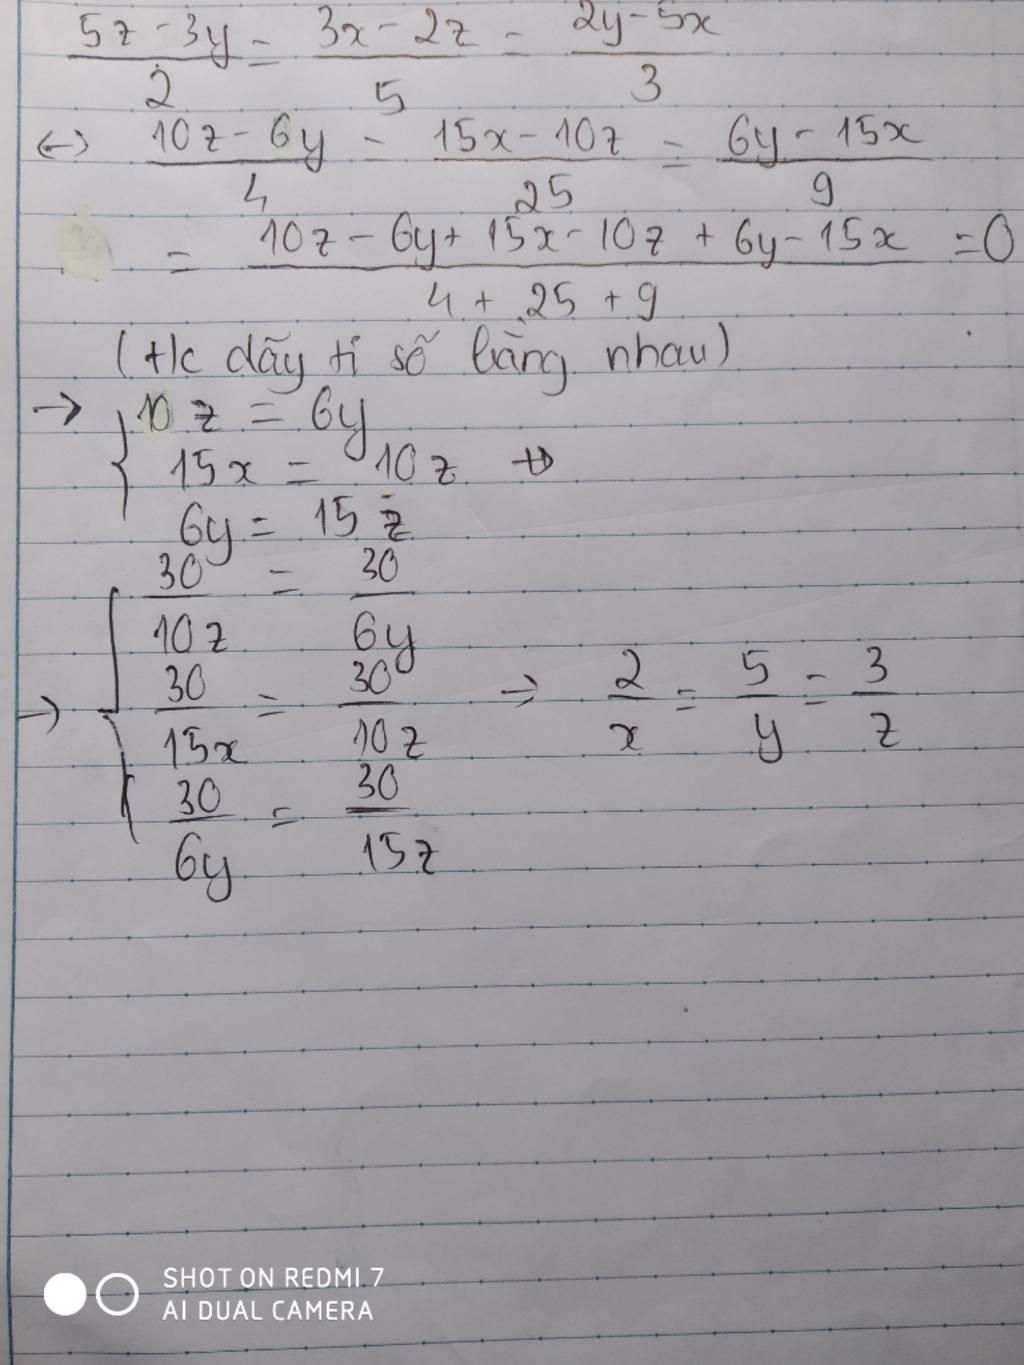 5z - 3y / 2 = 3x - 2z / 5 = 2y - 5x / 3
<-> 10z - 6y / 4 = 15x - 10z / 25 = 6y - 15x / 9
= 10z - 6y + 15x - 10z + 6y - 15x / 4 + 25 + 9 = 0
(t/c dãy tỉ số bằng nhau)
-> { 10z = 6y
15x = 10z
6y = 15z
-> { 30/10z = 30/6y
30/15x = 30/10z -> 2/x = 5/y = 3/z
30/6y = 30/15z
SHOT ON REDMI 7
AI DUAL CAMERA